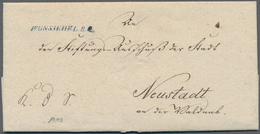 WUNSIEDEL R.3.
An
den Stiftungs-Ausschuß der Stadt
Neustadt
K. d. S.
an der Waldnab.